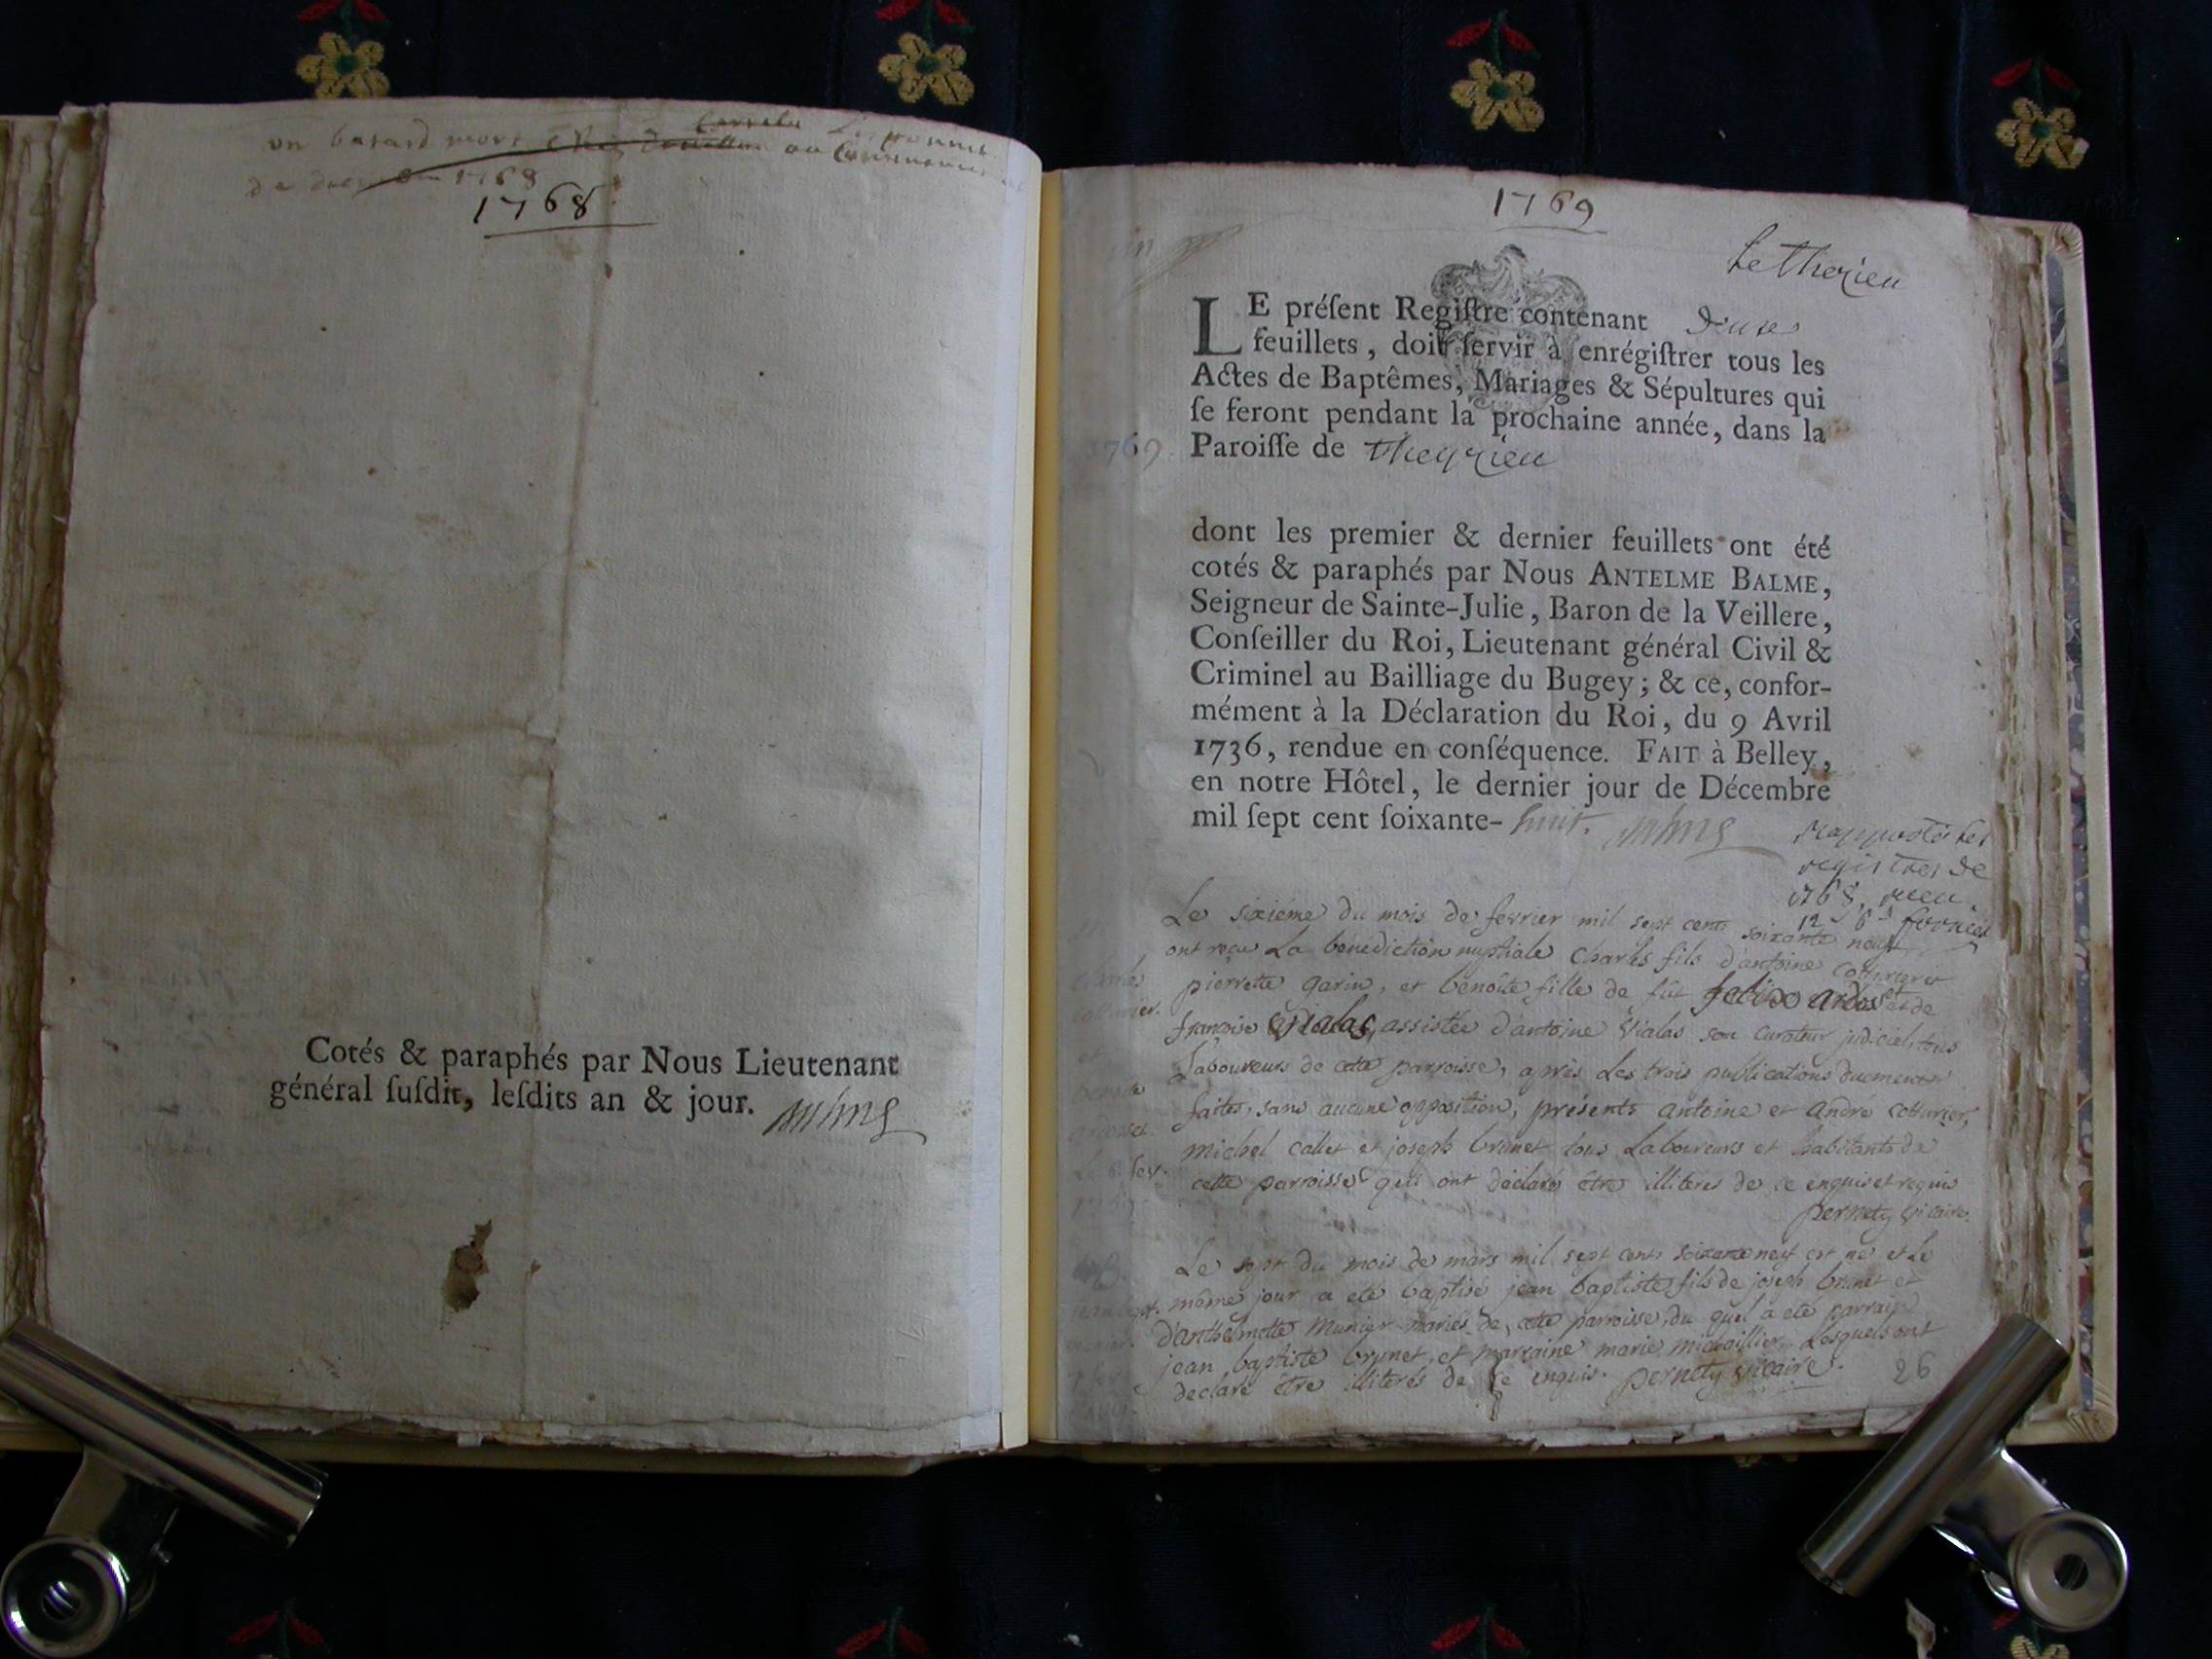 un batard mort au
de 1768
1768
Cotés & paraphés par Nous Lieutenant
général ſuſdit, leſdits an & jour.
1769
LE préſent Regiſtre contenant
feuillets, doit ſervir à enrégiſtrer tous les
Actes de Baptêmes, Mariages & Sépultures qui
ſe feront pendant la prochaine année, dans la
1769. Paroiſſe de theyzieu
dont les premier & dernier feuillets ont été
cotés & paraphés par Nous ANTELME BALME,
Seigneur de Sainte-Julie, Baron de la Veillere,
Conſeiller du Roi, Lieutenant général Civil &
Criminel au Bailliage du Bugey; & ce, confor-
mément à la Déclaration du Roi, du 9 Avril
1736, rendue en conſéquence. FAIT à Belley,
en notre Hôtel, le dernier jour de Décembre
mil ſept cent ſoixante- huit.
rapporté les
registres de
1768,
12
Le sixiéme du mois de fevrier mil sept cents soixante neuf
ont reçu La bénédiction nuptiale Charles fils d'antoine cotturier et
pierrette garin, et benoîte fille de fût felix et de
françoise vialas, assistée d'antoine vialas son curateur judiciel, tous
Laboureurs de cette parroisse, après Les trois publications duement
faites, sans aucune opposition, présents antoine et andré cotturier,
michel callet et joseph brunet tous Laboureurs et habitants de
cette parroisse qui ont déclaré être illiteres de ce enquis et requis
pernety vicaire.
Le sept du mois de mars mil sept cents soixante neuf est né et Le
même jour a eté baptisé jean baptiste fils de joseph brunet et
d'anthelmette munier mariés de cette parroisse, du quel a eté parrain
jean baptiste brunet, et marraine marie Lesquels ont
declaré être illiterés de ce enquis. pernety vicaire.
26